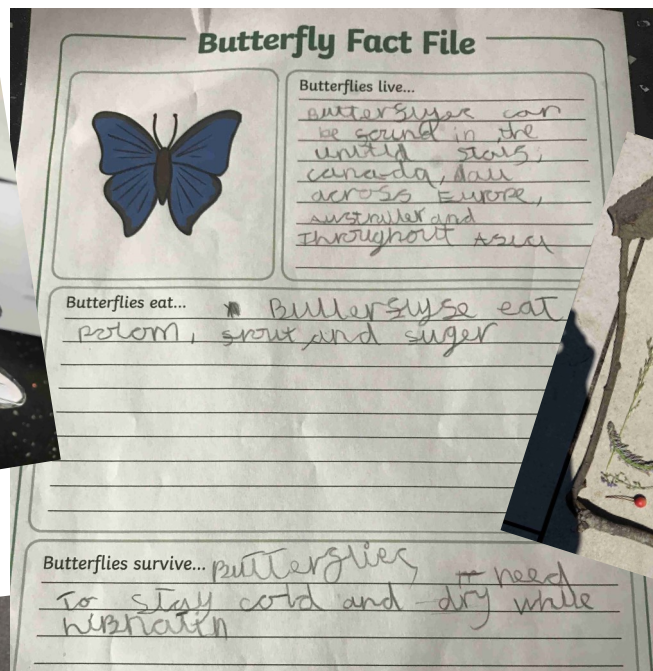 Butterfly Fact File
Butterflies live...
Butterslyse can
be sound in the
unitid stats,
canada, dall
across Europe,
Australler and
Throughout Asia
Butterflies eat...
Buttersyse eat
polom, srout and suger
Butterflies survive... Butterflies need
To stay cold and dry while
hibnatin